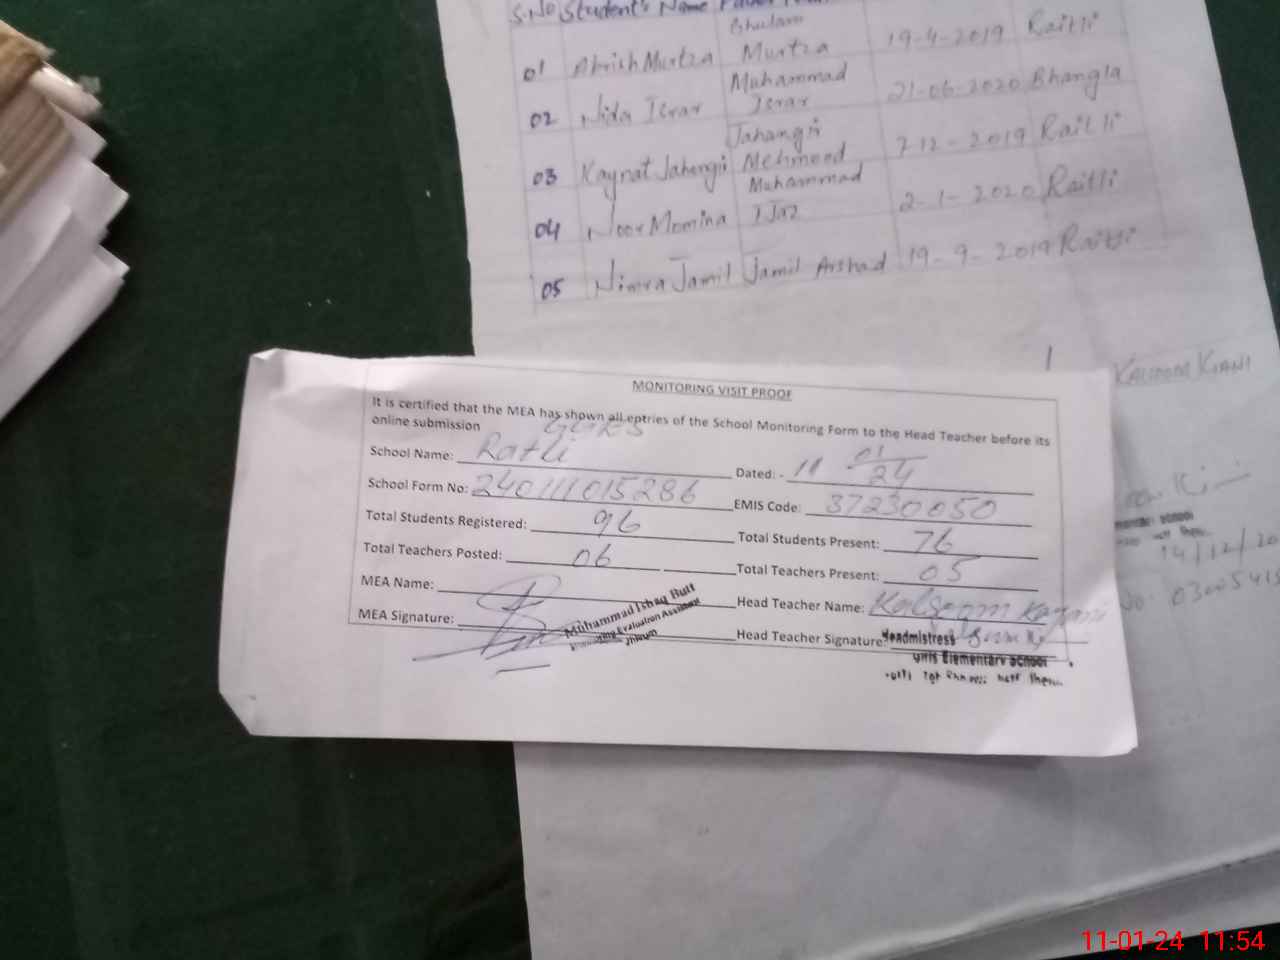 S.No Student's Name
01 Abrish Murtza Ghulam Murtza 19-4-2019 Raitli
02 Nida Israr Muhammad Israr 21-06-2020 Bhangla
03 Kaynat Jahengii Jahangii Mehmood 7-12-2019 Raitli
04 Noor Momina Muhammad IJaz 2-1-2020 Raitli
05 Nimra Jamil Jamil Arshad 19-9-2019 Raitli
KALSOOM KIANI
MONITORING VISIT PROOF
It is certified that the MEA has shown all entries of the School Monitoring Form to the Head Teacher before its
online submission
School Name: GGES Ratli Dated: - 11 01/24
School Form No: 240111015286 EMIS Code: 37230050
Total Students Registered: 96 Total Students Present: 76
Total Teachers Posted: 06 Total Teachers Present: 05
MEA Name: Head Teacher Name: Kalsoom Kayani
MEA Signature: Head Teacher Signature:
Muhammad Ishaq Butt
Monitoring Evaluation Assistant
Jhelum
Headmistress
Girls Elementary School
14/12/20
No. 03005415
11-01-24 11:54